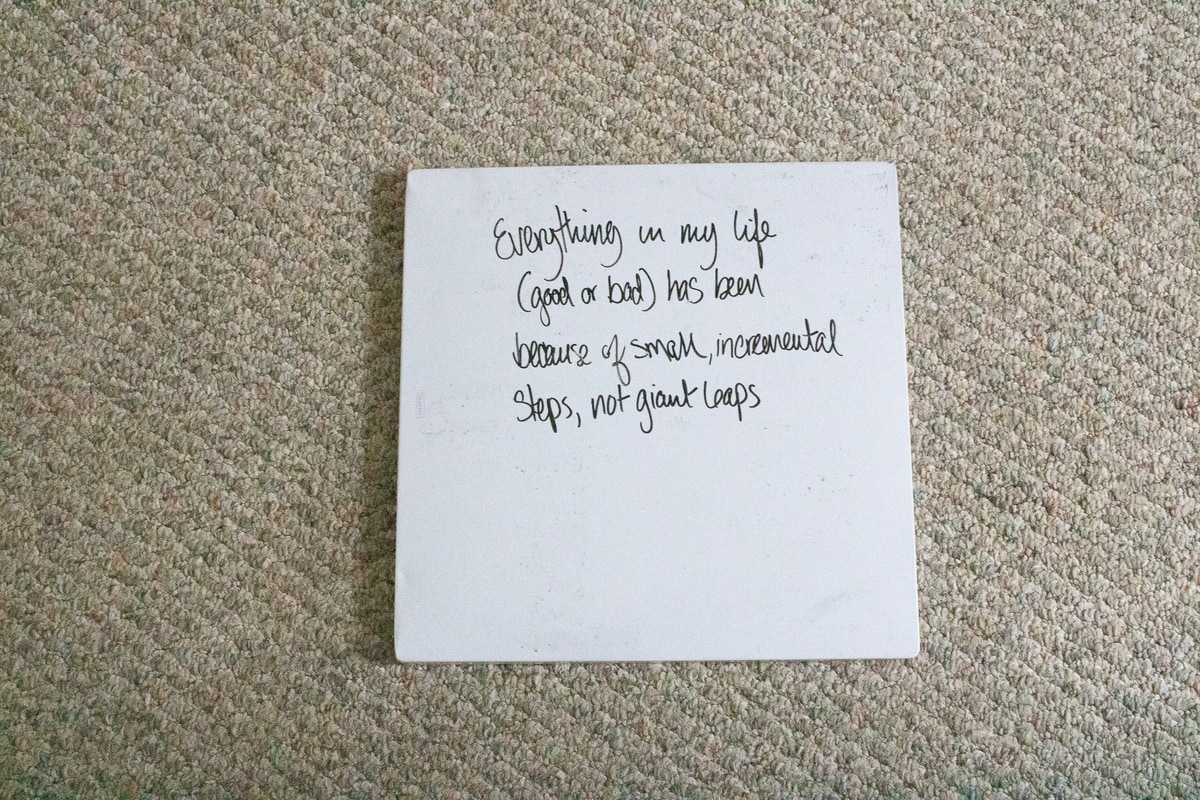 Everything in my life
(good or bad) has been
because of small, incremental
steps, not giant leaps